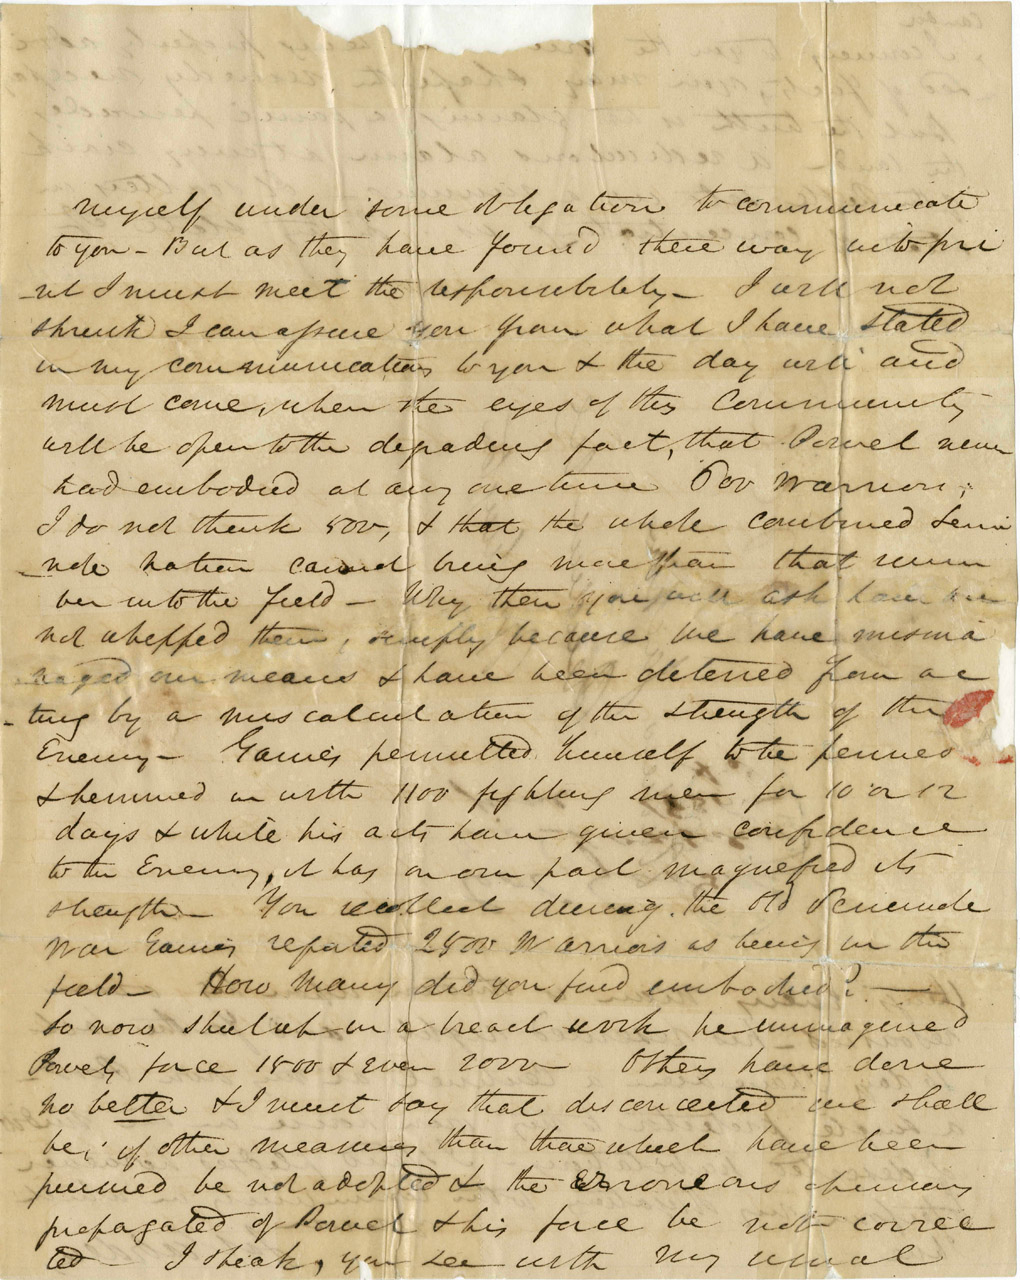 myself under some obligation to communicate
to you - But as they have found there way into pri
-nt I must meet the responsibility - I will not
shrink I can assure you from what I have stated
in my communications to you & the day will and
must come, when the eyes of this Community
will be open to the degrading fact, that Powel never
had embodied at any one time 600 Warriors,
I do not think 500, & that the whole combined Semi
-nole nation cannot bring more than that num
ber into the field - Why then you will ask have we
not whipped them, simply because we have misma
naged our means & have been deterred from ac
-ting by a miscalculation of the strength of the
Enemy - Gaines permitted himself to be penned
& hemmed in with 1100 fighting men for 10 or 12
days & while his acts have given confidence
to the Enemy, it has on our part magnified its
strength - You recollect during the Old Seminole
War Gaines reported 2800 Warriors as being in the
field - How Many did you find embodied? -
So now shut up in a breast work he immagined
Powels force 1800 & even 2000 Others have done
no better & I must say that disconcerted we shall
be, if other measures than those which have been
pursued be not adopted & the Erroneous opinions
propagated of Powel & his force be not correc
ted - I speak, you see with my usual